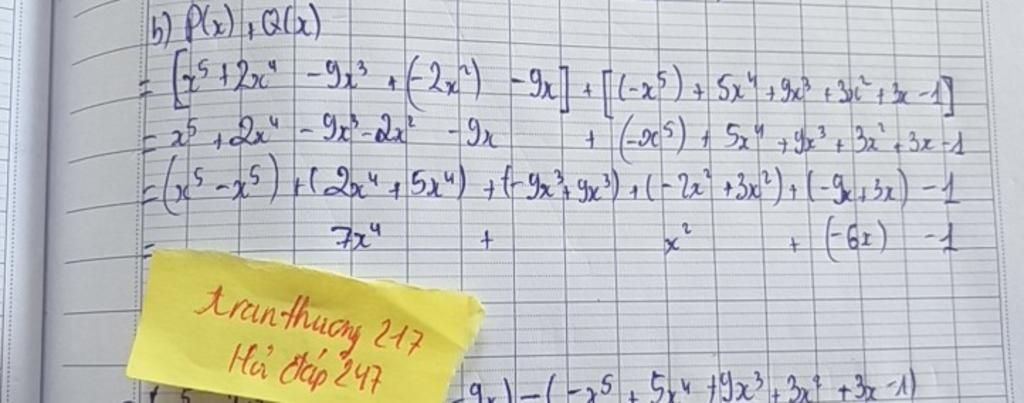 b) P(x) + Q(x)
= [x⁵ + 2x⁴ - 9x³ + (-2x²) - 9x] + [(-x⁵) + 5x⁴ + 9x³ + 3x² + 3x - 1]
= x⁵ + 2x⁴ - 9x³ - 2x² - 9x + (-x⁵) + 5x⁴ + 9x³ + 3x² + 3x - 1
= (x⁵ - x⁵) + (2x⁴ + 5x⁴) + (-9x³ + 9x³) + (-2x² + 3x²) + (-9x + 3x) - 1
= 7x⁴ + x² + (-6x) - 1
tranthuong 217
Hỏi đáp 247
9x) - (-x⁵ + 5x⁴ + 9x³ + 3x² + 3x - 1)